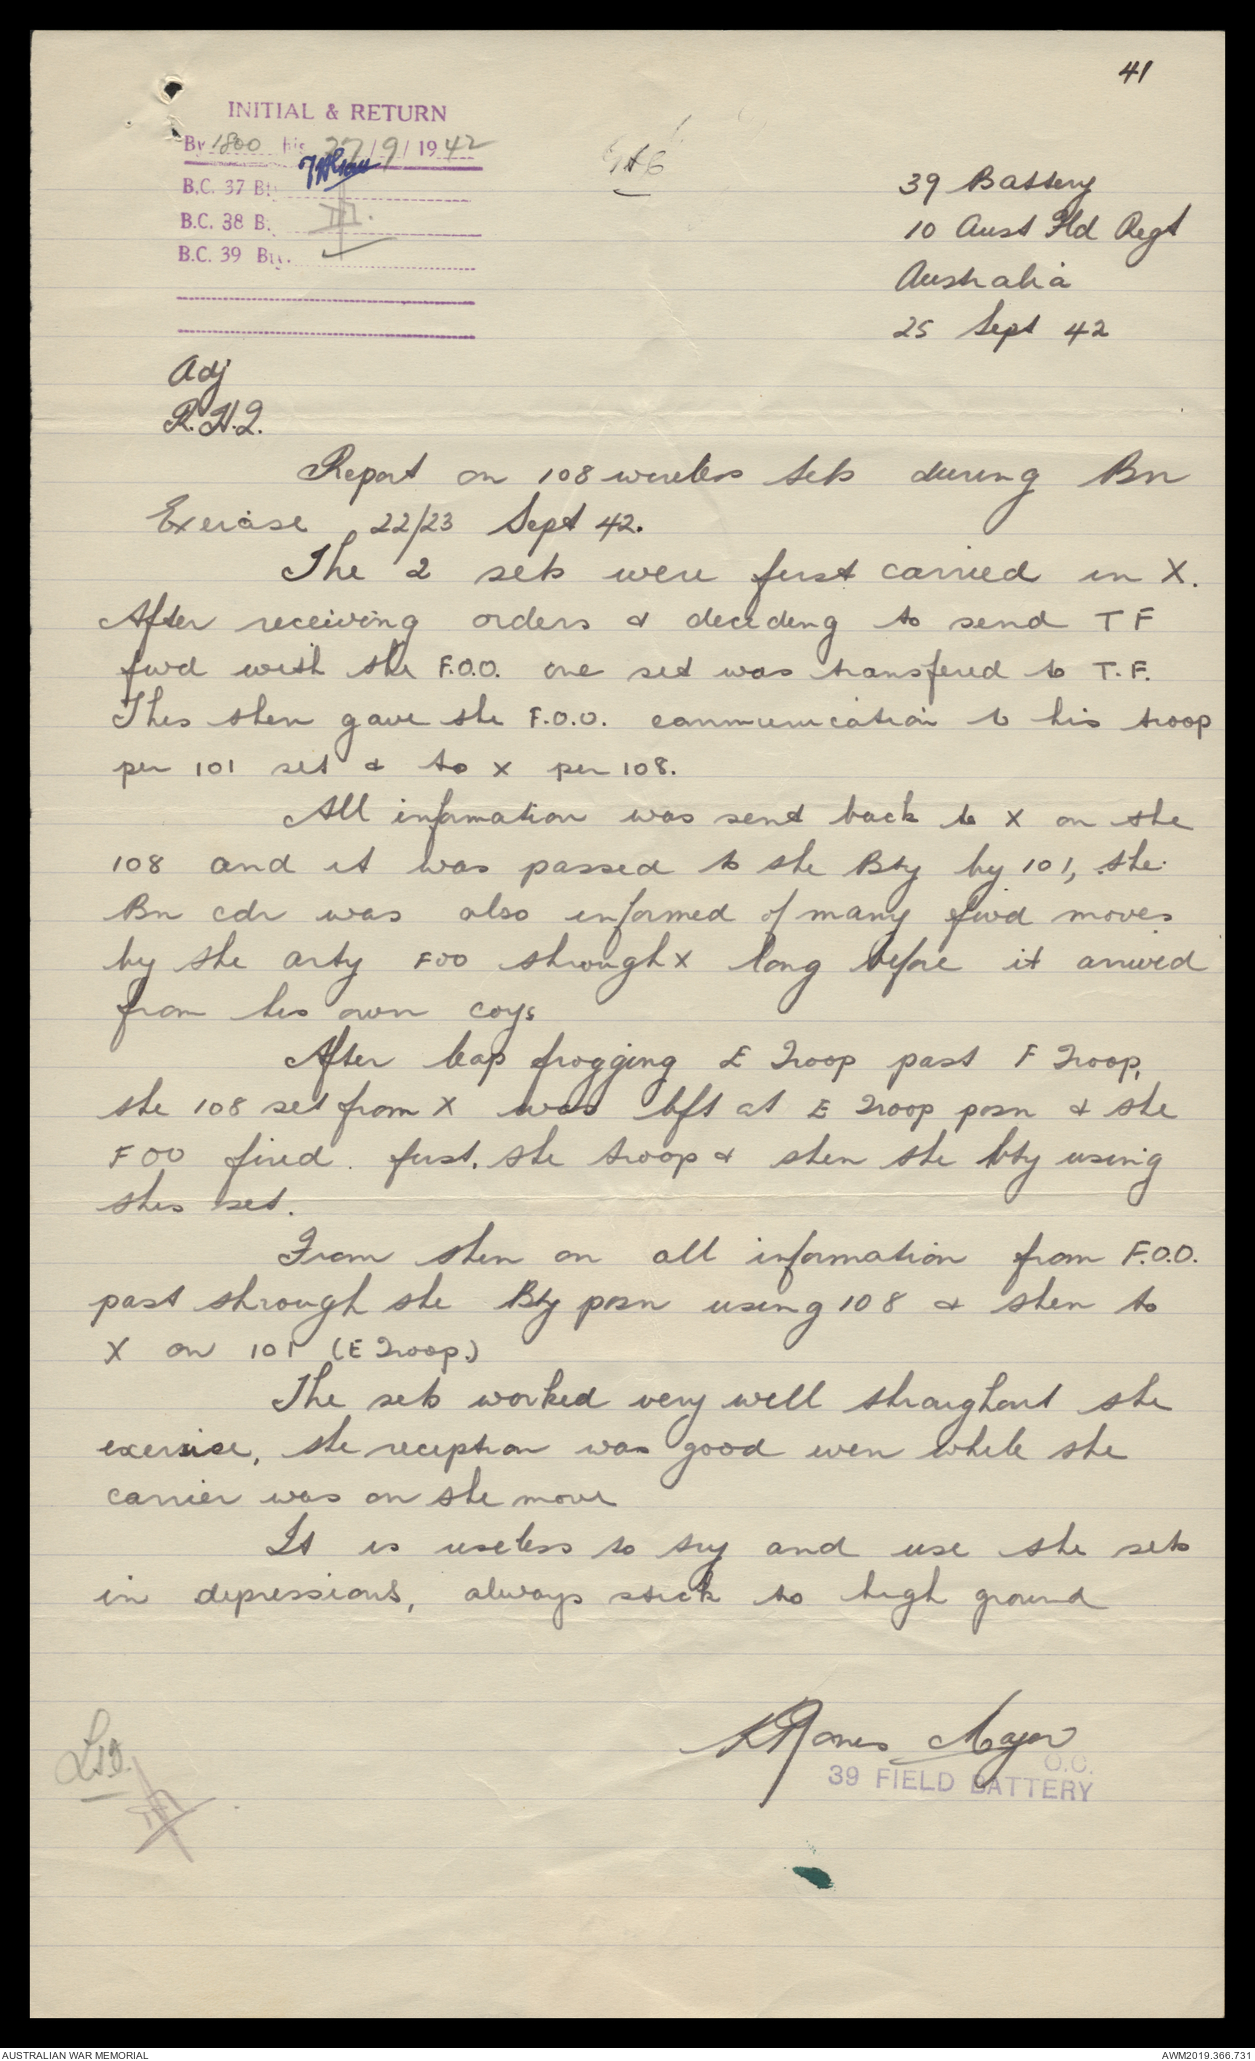 41
INITIAL & RETURN
By 1800 hrs 27/9/1942
B.C. 37 Bty.
B.C. 38 B.
B.C. 39 Bty.
39 Battery
10 Aust Fld Regt
Australia
25 Sept 42
Adj
R.H.Q.
Report on 108 wireless sets during Bn
Exercise 22/23 Sept 42.
The 2 sets were first carried in X.
After receiving orders & deciding to send TF
fwd with the F.O.O. one set was transfered to T.F.
This then gave the F.O.O. communication to his troop
per 101 set & to X per 108.
All information was sent back to X on the
108 and it was passed to the Bty by 101, the
Bn cdr was also informed of many fwd moves
by the arty FOO through X long before it arrived
from his own coys
After leap frogging E Troop past F Troop,
the 108 set from X was left at E Troop posn & the
FOO fired first, the troop & then the bty using
this set.
From then on all information from F.O.O.
past through the Bty posn using 108 & then to
X on 101 (E Troop.)
The sets worked very well throughout the
exercise, the reception was good even while the
carrier was on the move
It is useless to try and use the sets
in depressions, always stick to high ground
Jones Major
O.C.
39 FIELD BATTERY
AUSTRALIAN WAR MEMORIAL
AWM2019.366.731